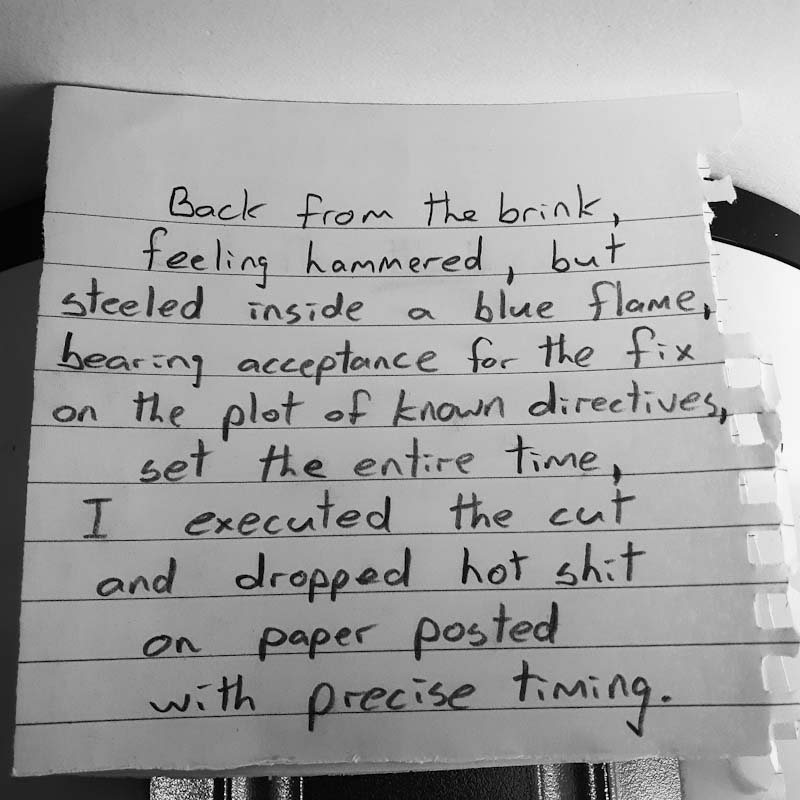 Back from the brink,
feeling hammered, but
steeled inside a blue flame,
bearing acceptance for the fix
on the plot of known directives,
set the entire time,
I executed the cut
and dropped hot shit
on paper posted
with precise timing.